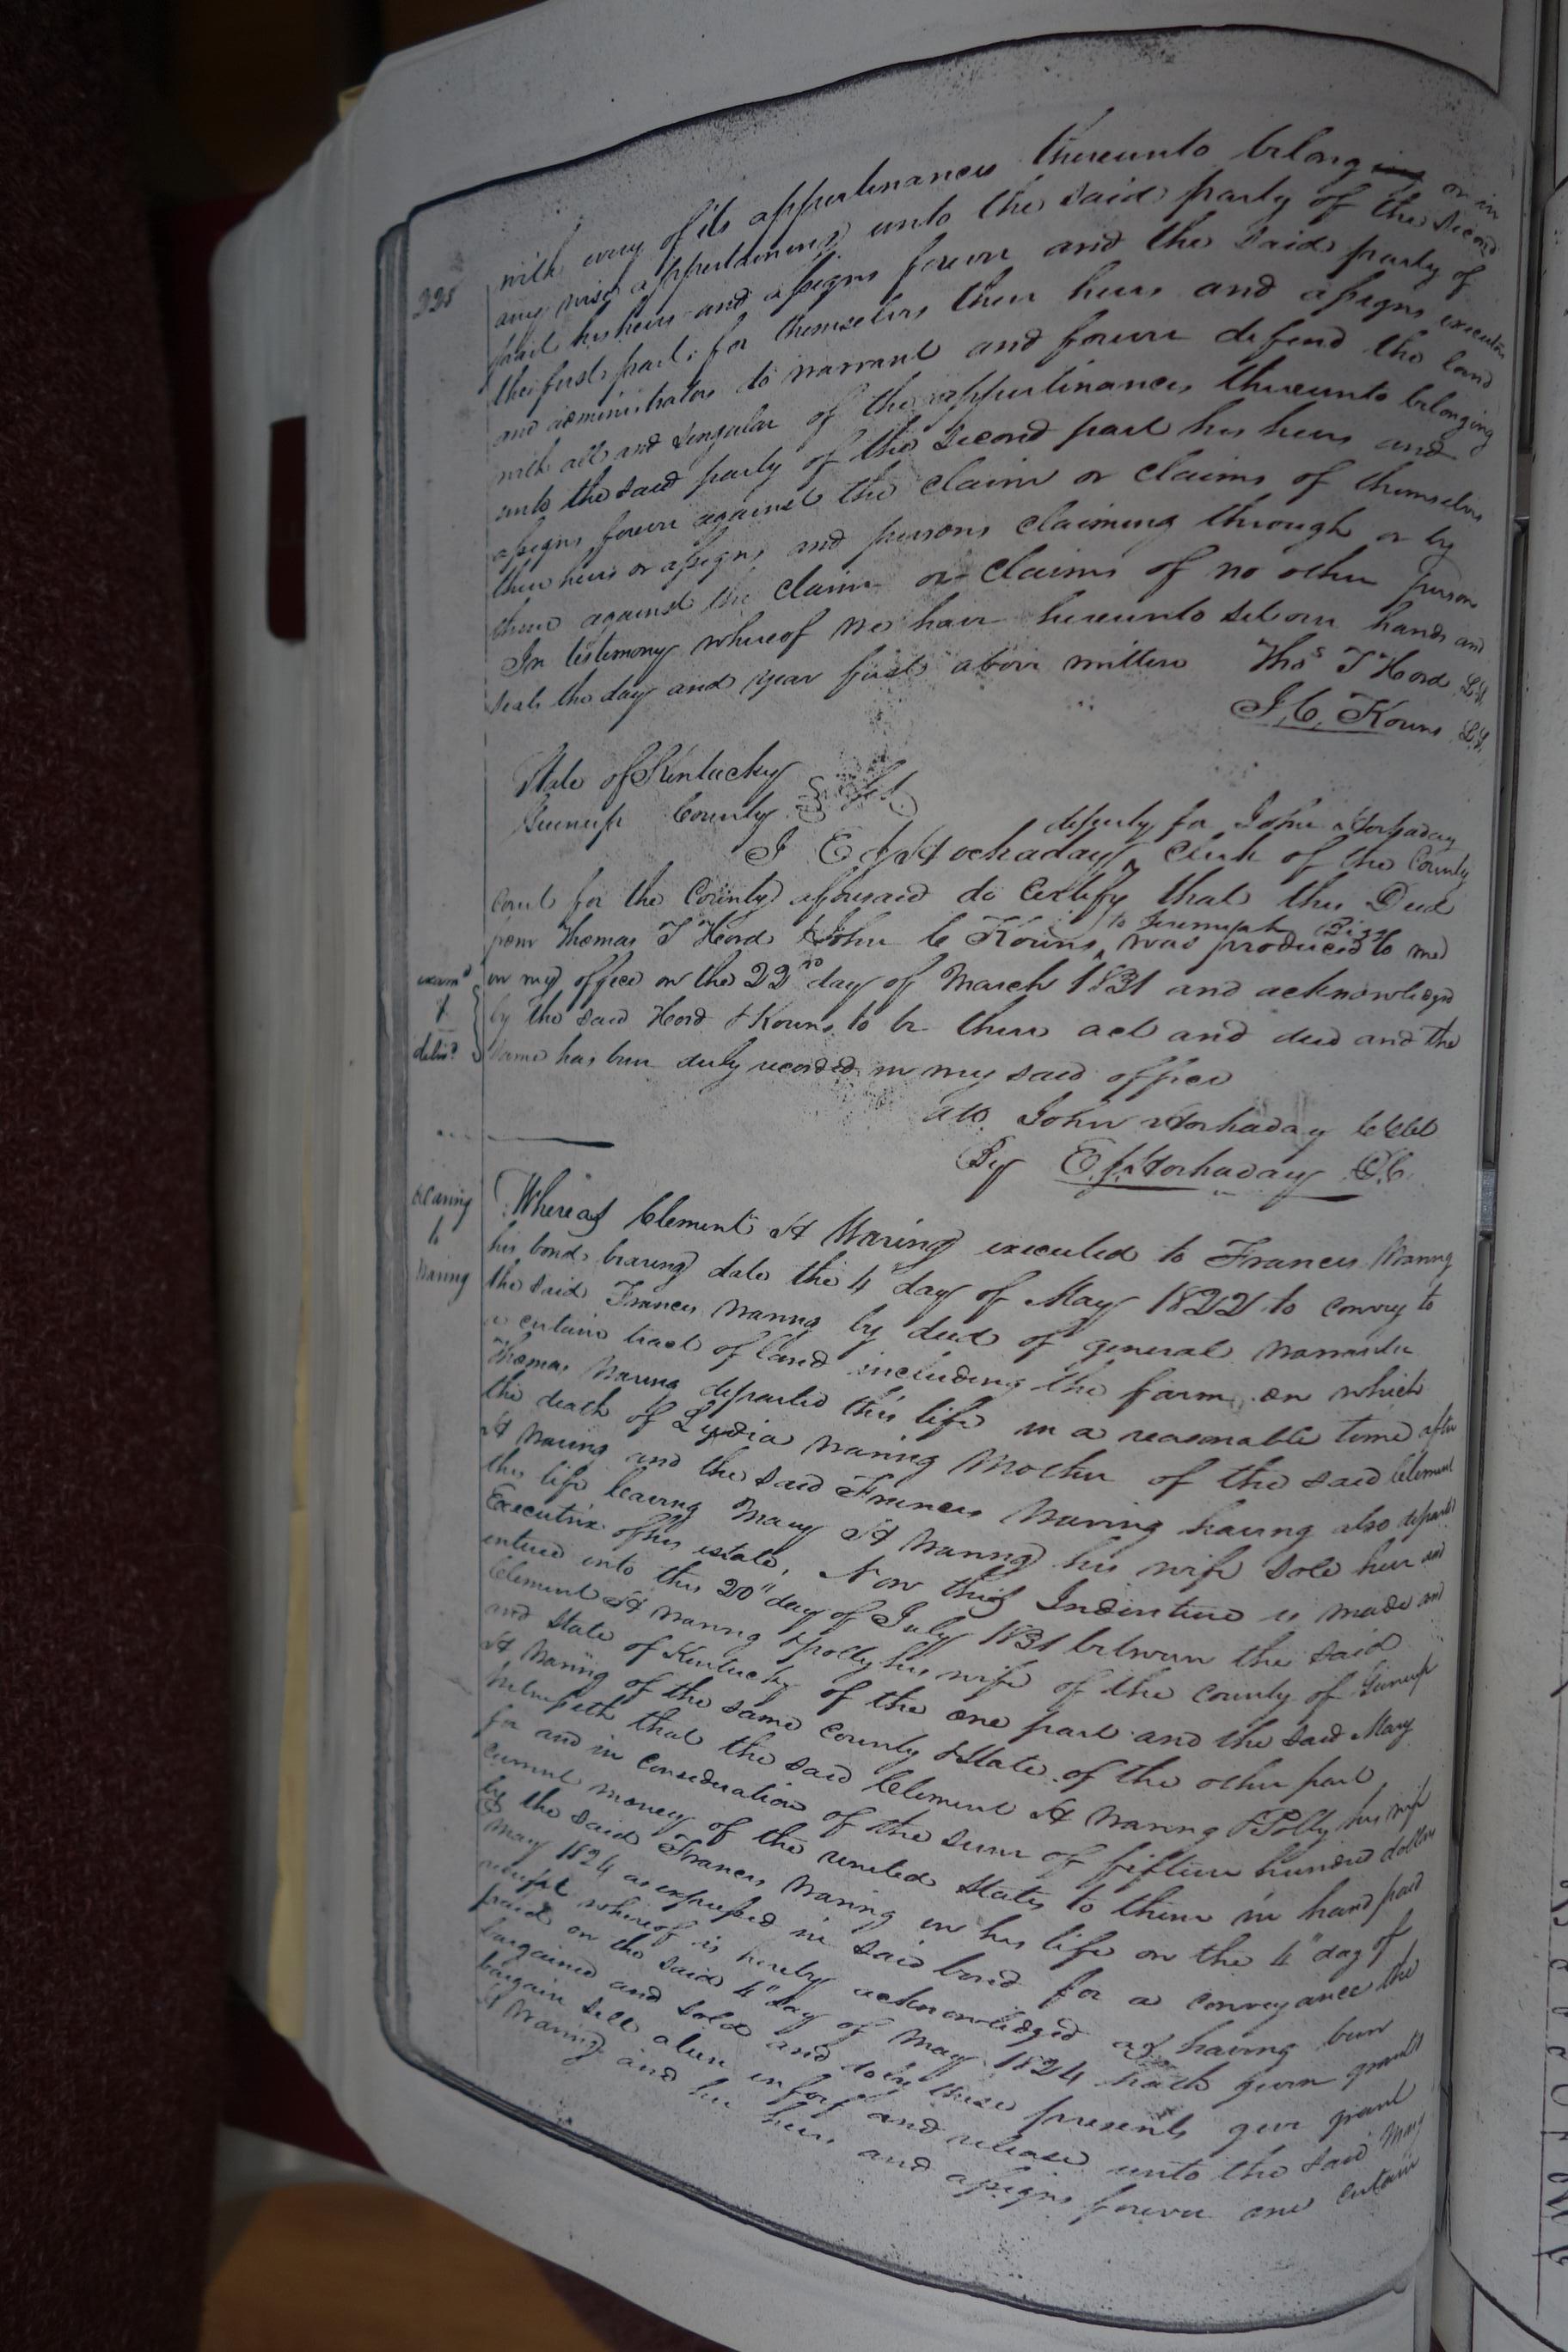 228
with every of its appurtenances thereunto belonging or in
any wise appertaining unto the said party of the second
part his heirs and assigns forever and the said party of
the first part, for themselves their heirs and assigns executors
and administrators do warrant and forever defend the land
with all and singular of the appurtinances thereunto belonging
unto the said party of the second part his heirs and
assigns forever against the claim or claims of themselves
their heirs or assigns and persons claiming through or by
them against the claim or claims of no other person
In testimony whereof we have hereunto set our hands and
seals the day and year first above written Thos T Hord L.S.
J. C. Kouns L.S.
State of Kentucky
Greenup County } Sct.
deputy for John Hockaday
I E J Hockaday, Clerk of the County
Court for the County aforesaid do certify that this Deed
to Jeremiah
from Thomas T Hord & John C Kouns was produced to me
in my office on the 22nd day of March 1831 and acknowledged
by the said Hord & Kouns to be their act and deed and the
same has been duly recorded in my said office
examd
&
delivd
att. John Hockaday
By E. J. Hockaday D.C.
Waring
to
Waring
Whereas Clement H Waring executed to Francis Waring
his bond bearing date the 4" day of May 1822 to convey to
the said Francis Waring by deed of general warrantee
a certain tract of land including the farm on which
Thomas Waring departed this life in a reasonable time after
the death of Lydia Waring Mother of the said Clement
H Waring and the said Francis Waring having also departed
this life leaving Mary H Waring his wife sole heir and
Executrix of his estate, Now this Indenture is made and
entered into this 20" day of July 1831 between the said
Clement H Waring & Polly his wife of the county of Greenup
and State of Kentucky of the one part and the said Mary
H Waring of the same County & State of the other part
Witnesseth that the said Clement H Waring & Polly his wife
for and in consideration of the sum of fifteen hundred dollars
current money of the united States to them in hand paid
by the said Francis Waring in his life on the 4" day of
May 1824 as expressed in said bond for a conveyance the
receipt whereof is hereby acknowledged as having been
paid on the said 4" day of May 1824 hath given granted
bargained and sold and do by these presents give grant
bargain sell alien enfoef and release unto the said Mary
H Waring and her heirs and assigns forever one certain